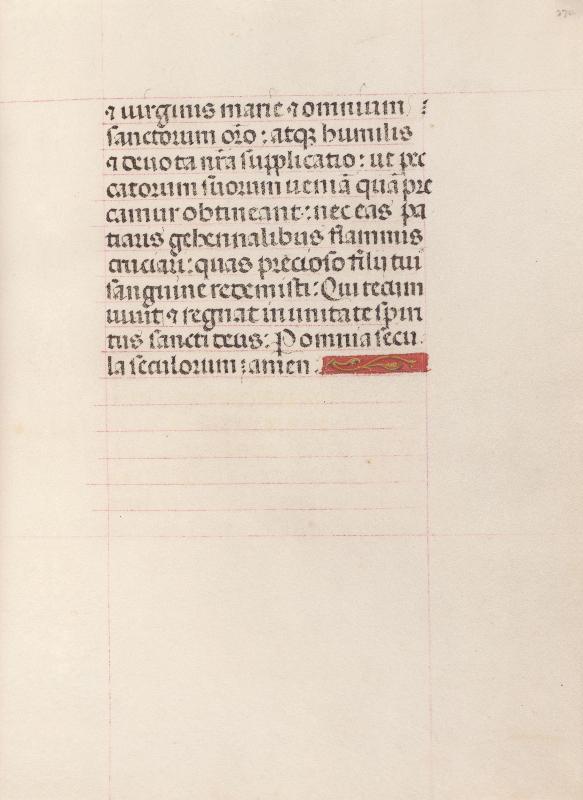 ⁊ uirginis marie ⁊ omnium :
sanctorum or̃o : atqꝫ humilis
⁊ deuota nr̃a supplicatio : ut pec
catorum suorum ueniã quã pre
camur obtineant : nec eas pa
tiaris gehennalibus flammis
cruciari : quas precioso filij tui
sanguine redemisti : Qui tecum
uiuit ⁊ regnat in unitate spiri
tus sancti deus : P omnia secu
la seculorum : amen .